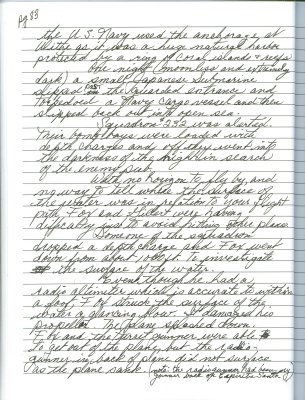 pg 88
the U.S. Navy used the anchorage at
Ulithi as it was a huge natural harbor
protected by a ring of coral islands & reefs
One night (moonless and extremely
dark) a small Japanese submarine
slipped past the guarded entrance and
torpedoed a Navy cargo vessel and then
slipped back out into open sea.
Squadron 232 was alerted.
Their bomb bays were loaded with
depth charges and off they went into
the darkness of the night in search
of the enemy sub.
With no horizon to fly by, and
no way to tell where the surface of
the water was in relation to your flight
path Fox and were having
difficulty just to avoid hitting other planes
Someone of the squadron
dropped a depth charge and Fox went
down from about 1000 ft. to investigate
the surface of the water.
Even though he had a
radio altimeter which is accurate to within
a foot, Fox struck the surface of the
water a glancing blow. It damaged his
propellor. The plane splashed down.
Fox and the turret gunner were able
to get out of the plane but the radio-
gunner in back of plane did not surface
as the plane sank (note: the radio gunner had been my
gunner back at Espiritu Santo)